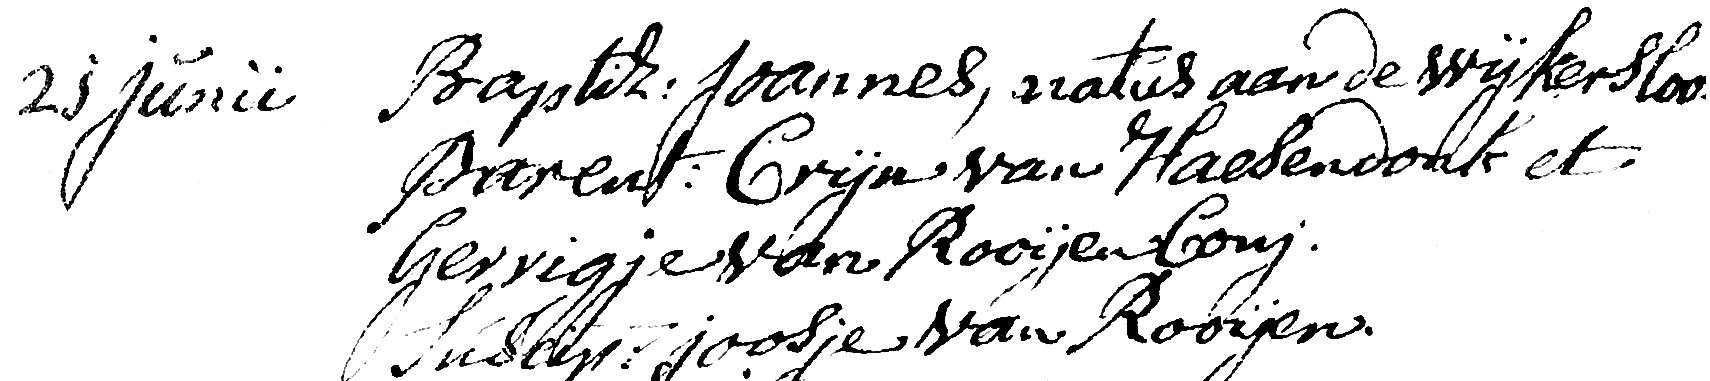 25 junii Baptiz: Joannes, natus aan de wijkersloo.
Parent: Crijn van Haesendonk et
Gerrigje van Rooijen Conj.
Suscep: joosje van Rooijen.